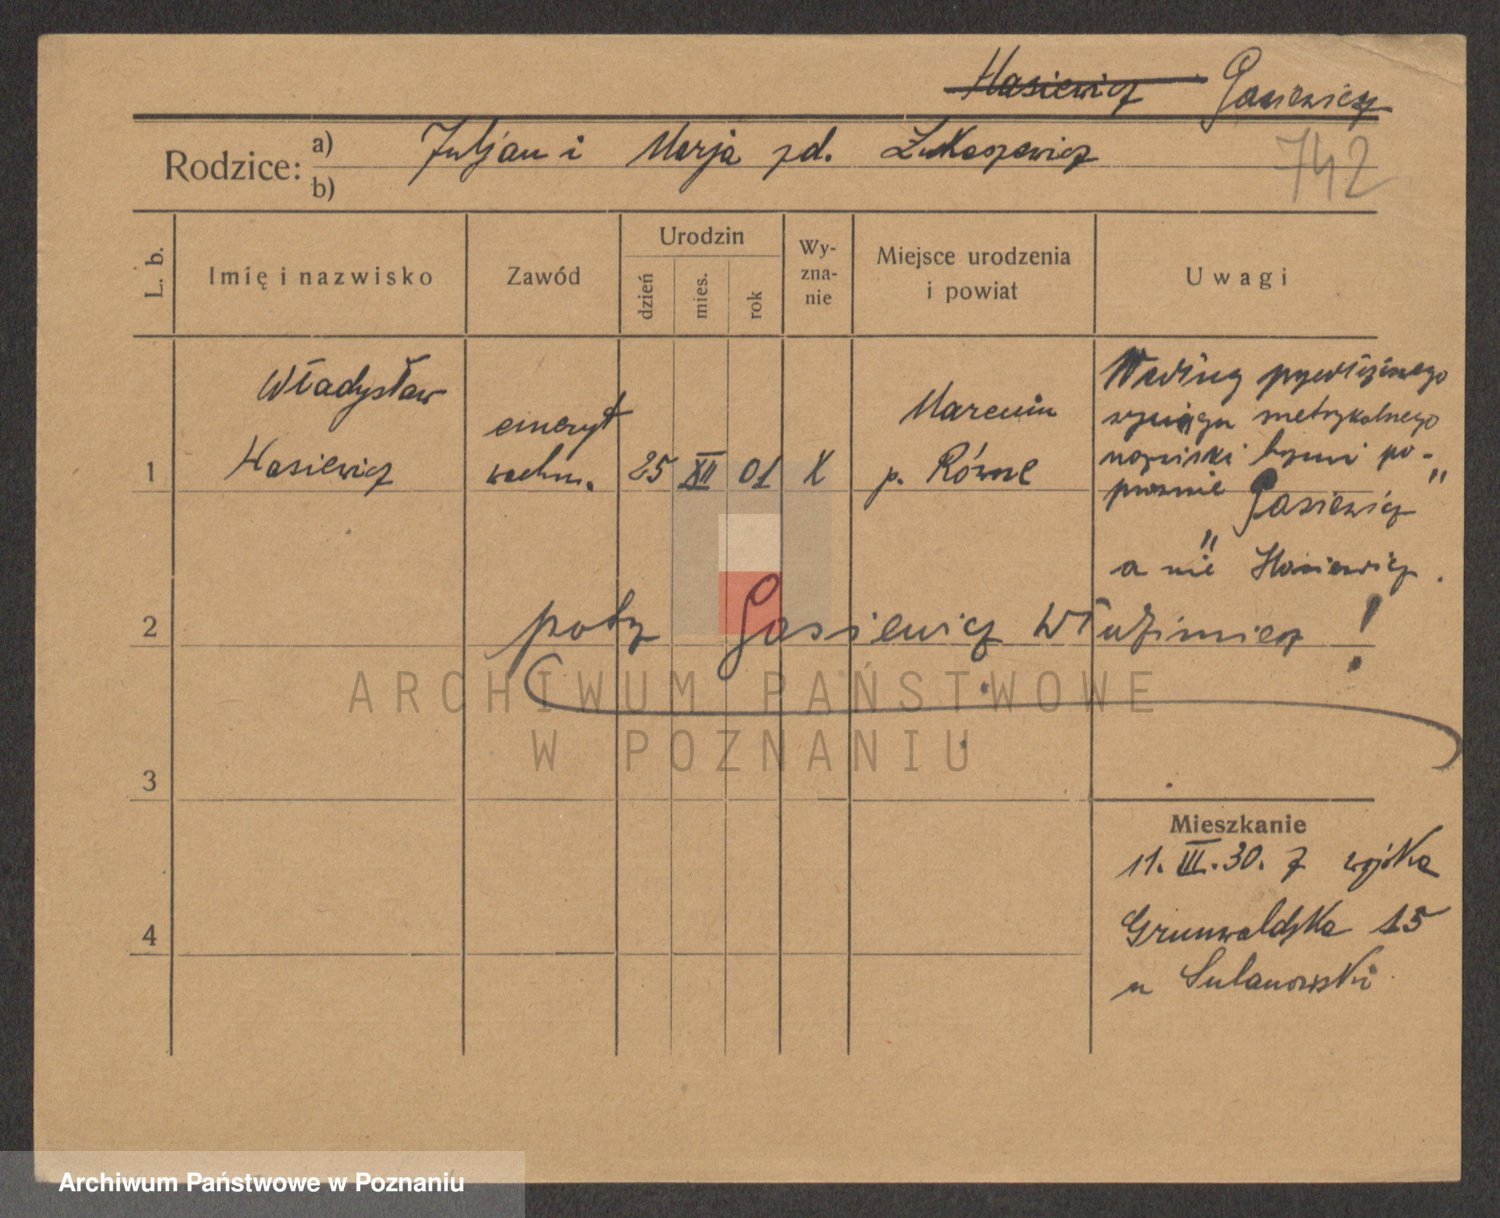 Hasiewicz Gasiewicz
a) Juljan i Marja zd. Łukaszewicz
Rodzice:
b)
742
L. b.
Imię i nazwisko
Zawód
Urodzin
dzień
mies.
rok
Wy-
zna-
nie
Miejsce urodzenia
i powiat
Uwagi
1
Władysław
Hasiewicz
emeryt
wachm.
25 XII 01 X
Marcunin
p. Równe
Według przedłożonego
wyciągu metrykalnego
nazwisko brzmi po-
prawnie Gasiewicz"
a nie "Hasiewicz.
2
patrz Gasiewicz Włodzimierz !
3
Mieszkanie
11. III. 30. z wojska
Grunwaldzka 15
u Sulanowski
4
ARCHIWUM PAŃSTWOWE
W POZNANIU
Archiwum Państwowe w Poznaniu